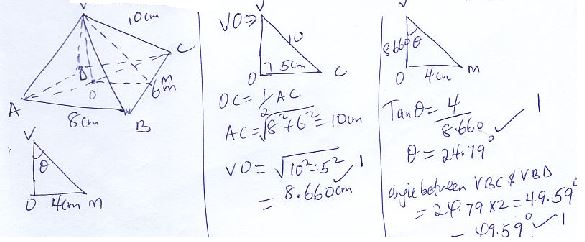 V
10cm
C
D
O
M
6m
A
8cm
B
V
θ
O 4cm M
VO⇒
V
10
O
7.5cm
C
OC = 1/2 AC
AC = √8²+6² = 10cm
VO = √10²-5² 1
= 8.660cm
V
8.660 θ
O 4cm M
Tan θ = 4/8.660 1
θ = 24.79°
angle between VBC & VBD
= 24.79 x 2 = 49.59°
= 49.59° 1